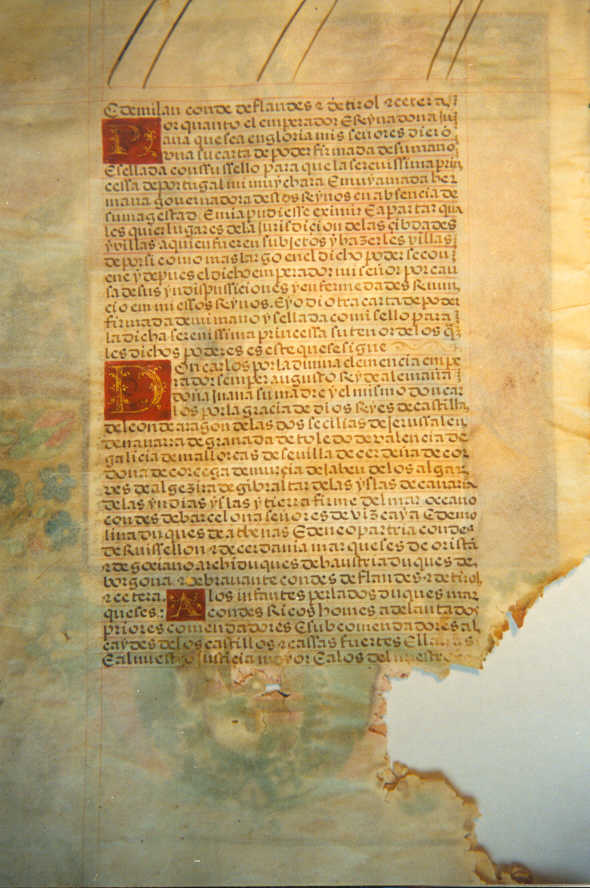 E de milan conde de flandes ⁊ de tirol ⁊ cetera
Por quanto el emperador E Reyna doña Ju
ana que sea en gloria mis señores dierō
vna su carta de poder firmada de su mano
E sellada con su sello para que la serenissima prin
cessa de portugal mi muy chara E muy amada her
mana governadora destos Reynos en absencia de
su magestad E mia pudiesse eximir E apartar qua
les quier lugares dela jurisdicion delas cibdades
y villas a quien fueren subjetos y hazerles villas
de por si como mas largo en el dicho poder se con
tiene y depues el dicho emperador mi señor por cau
sa de sus yndispussiciones y enfermedades Renun
cio en mi essos Reynos. E yo di otra carta de poder
firmada de mi mano y sellada con mi sello para
la dicha serenissima princessa su tenor de los q̄
les dichos poderes es este que se sigue
Don carlos por la divina clemencia empe
rador semper augusto Rey de alemaña
doña Juana su madre y el mismo don car
los por la gracia de dios Reyes de castilla,
de leon de aragon delas dos secilias de jerussalen
de navarra de granada de toledo de valencia de
galicia de mallorcas de sevilla de cerdeña de cor
dova de corcega de murcia de Jahen delos algar
ves de algezira de gibraltar delas yslas de canaria
delas yndias yslas y tierra firme del mar oceano
condes de barcelona señores de vizcaya E de mo
lina duques de athenas E de neopatria condes
de Ruissellon ⁊ de cerdania marqueses de oristā
⁊ de gociano archiduques de haustria duques de,
borgoña ⁊ de bravante condes de flandes ⁊ de tirol,
⁊ cetera. A los infantes perlados duques mar
queses: condes Ricos homes adelantados
priores comendadores E subcomendadores al
caydes delos castillos ⁊ cassas fuertes E llanas
E al nuestro Justicia mayor E alos del nuestro